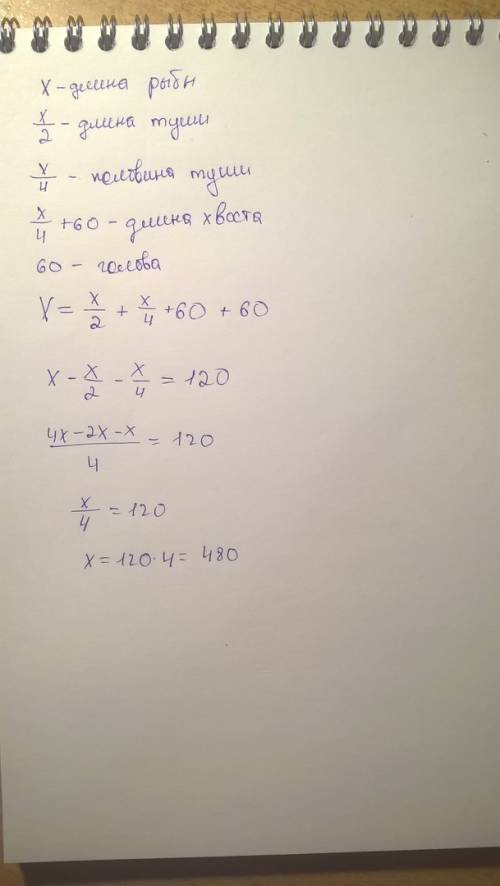 x – длина рыбы
x/2 – длина туши
x/4 – половина туши
x/4 +60 – длина хвоста
60 – голова
x = x/2 + x/4 +60 + 60
x – x/2 – x/4 = 120
(4x–2x–x)/4 = 120
x/4 = 120
x = 120·4 = 480